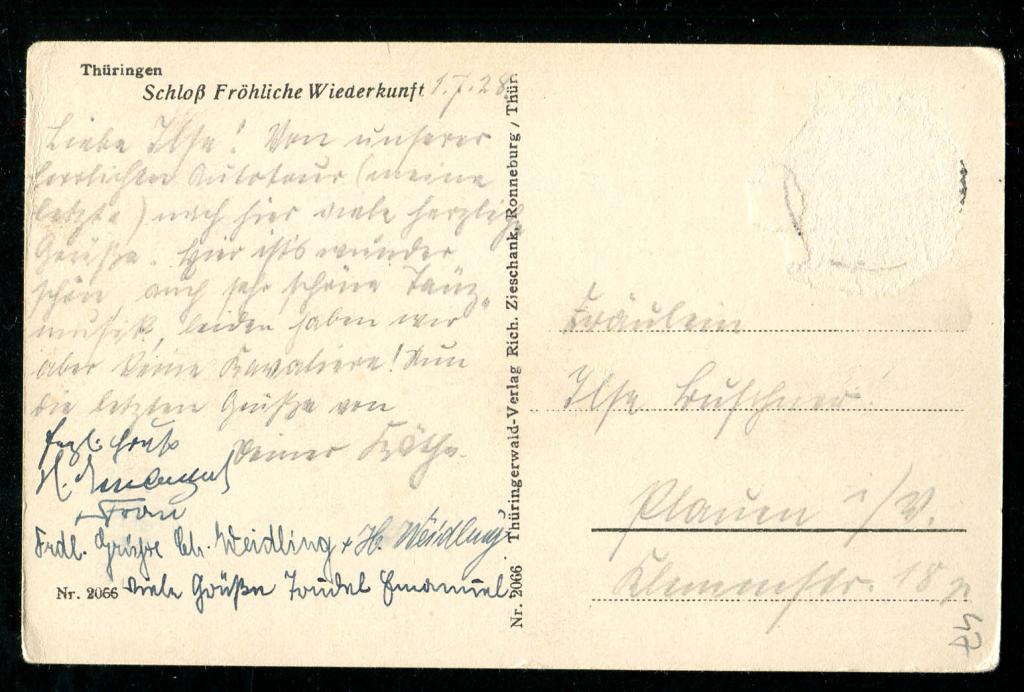 Thüringen
Schloß Fröhliche Wiederkunft
1.7.28.
Liebe Ilse! Von unserer
herrlichen Autotour (meine
letzte) nach hier viele herzliche
Grüße. Hier ist's wunder
schön, auch sehr schöne Tanz-
musik, leider haben wir
aber keine Kavaliere! Nun
die letzten Grüße von
Deiner Käthe.
herzl. Gruß
H.
+ Frau
Frdl. Grüße Ch. Weidling + H. Weidling
Viele Grüße Trudel Emanuel
Nr. 2066
Nr. 2066 Thüringerwald-Verlag Rich. Zieschank, Ronneburg / Thür.
Fräulein
Ilse Buschner
Plauen i/V.
Klemmstr. 18